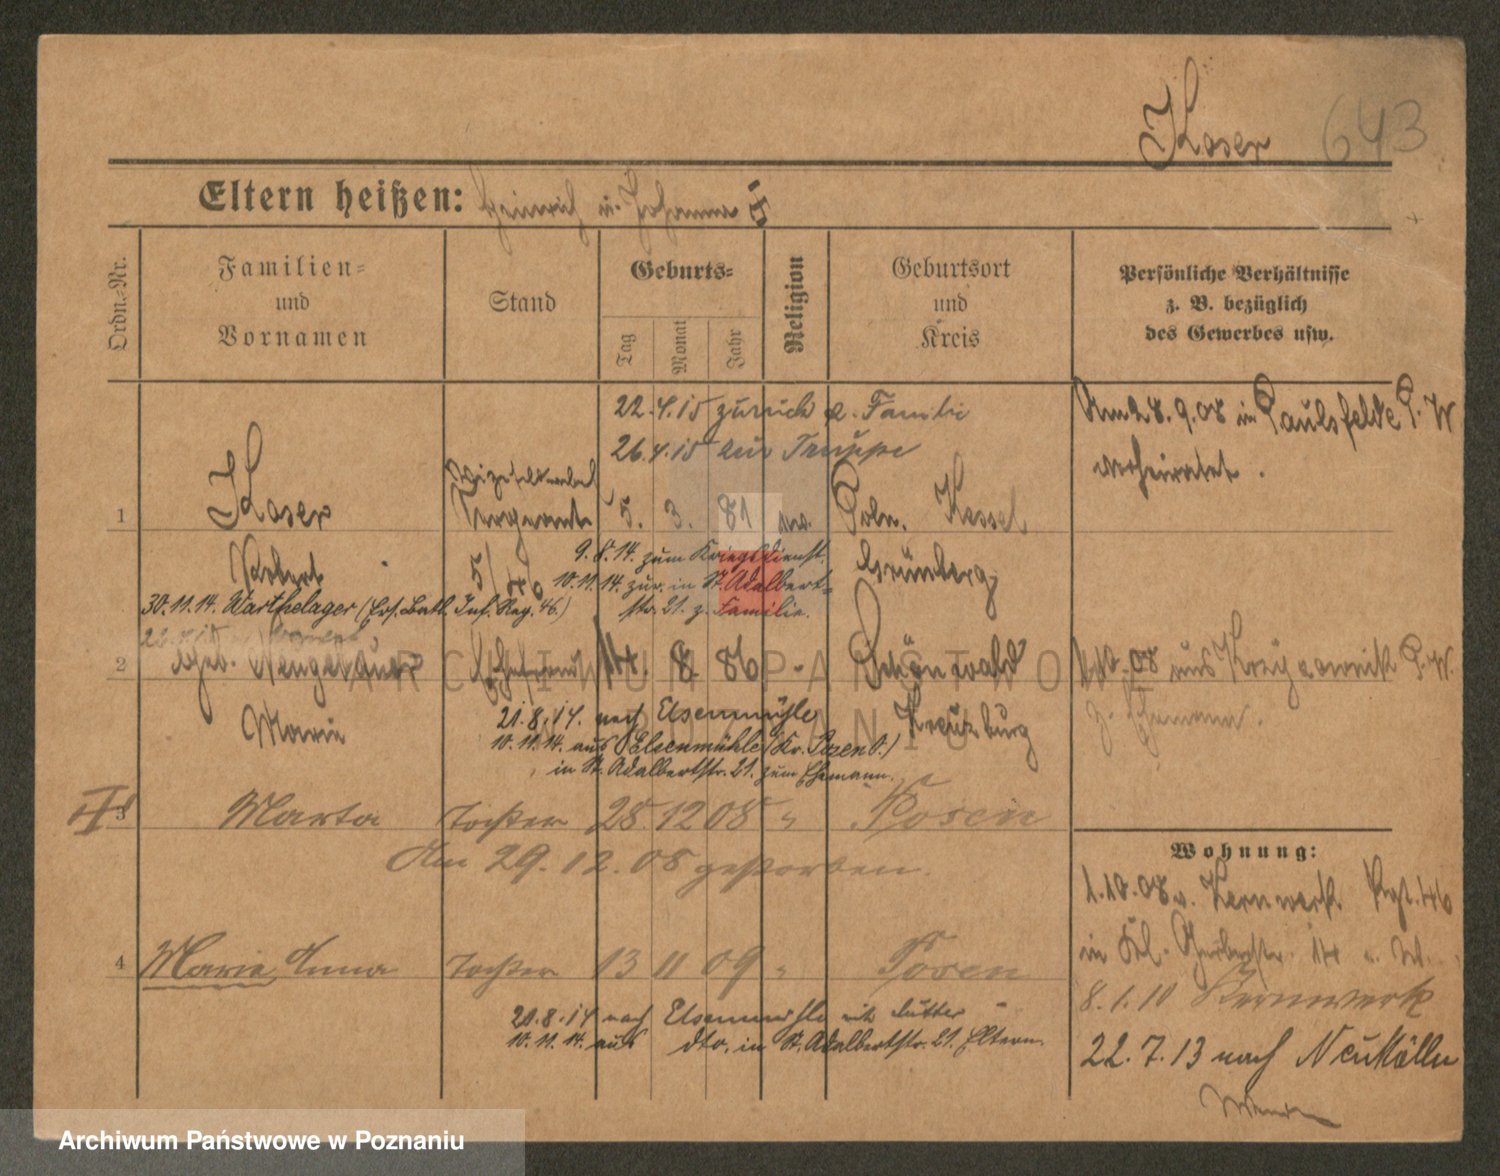 Koser 643
Eltern heißen: Heinrich u. Johanna
Ordn.=Nr.
Familien=
und
Vornamen
Stand
Geburts=
Tag
Monat
Jahr
Religion
Geburtsort
und
Kreis
Persönliche Verhältnisse
z. B. bezüglich
des Gewerbes usw.
22.4.15 zurück z. Familie
26.4.15 zur Truppe
Am 28.9.08 in Paulsfelde P. W.
verheiratet.
Vizefeldwebel
1 Koser Sergeant 5. 3. 81 Poln. Kessel
9.8.14. zum Kriegsdienst.
Robert 5/46 Grünberg
10.11.14 zur. in St. Adalbert=
30.11.14. Warthelager (Ers. Batl. Inf. Reg. 46.) str. 21. z. Familie.
2 geb. Neugebauer Ehefrau 14. 8 86 " Schönwald
08 aus P. W.
z. Ehemann.
Marie Kreuzburg
21.8.14. nach Elsenmühle
10.11.14. aus Elsenmühle (Kr. Posen O.)
in St. Adalbertstr. 21. zum Ehemann.
3 Marta Tochter 25 12 08 " Posen
Am 29.12.08 gestorben.
Wohnung:
1.10.08 v. Kernwerk Rgt. 46
in Kl. Gerberstr. 14
4 Maria Anna Tochter 13 11 09 " Posen
8.1.10 Kernwerk
21.8.14 nach Elsenmühle mit Mutter
10.11.14. aus dto. in St. Adalbertstr. 21. Eltern.
22.7.13 nach Neukölln
ARCHIWUM PAŃSTWOWE
W POZNANIU
Archiwum Państwowe w Poznaniu